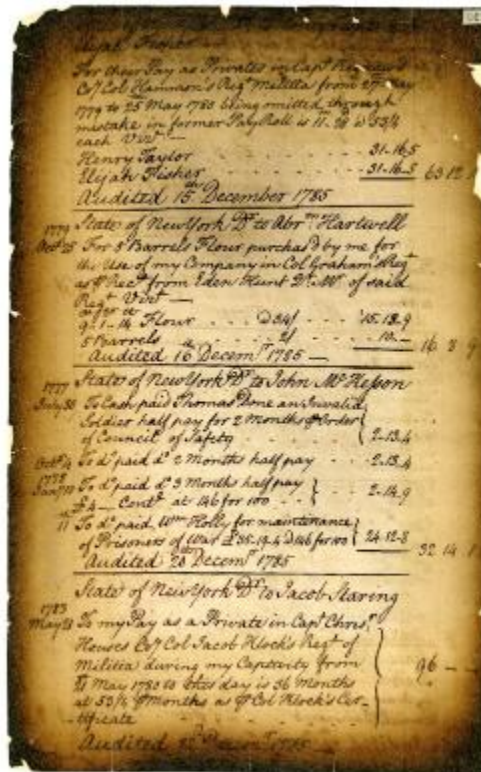 Elijah Fisher
For their Pay as Privates in Capt
Coy Col Hammon's Regt Militia from 27th May
1779 to 25 May 1780 being omitted through
mistake in former Pay Roll is 11.28 @ 53/4
each Vizt —
Henry Taylor - - - 31-16-5
Elijah Fisher - - - 31-16-5 63 12
Audited 15th December 1785
State of New York Dr to Abrm Hartwell
1779 Octr 25 For 5 Barrels Flour purchas'd by me for
the Use of my Company in Col Graham's Regt
as Rect from Eden Hunt Qr Mr of said
Regt Vizt —
9-1-14 Flour - - - @ 34/ 15-13-9
5 Barrels - - - 2/ 10-
Audited 16 Decemr 1785 — 16 3 9
1777 State of New York Dr to John McHesson
July 30 To Cash paid Thomas Done an Invalid
Soldier half pay for 2 Months Order
of Council of Safety - - - 2-13-4
Octr 4 To do paid do 2 Months half pay - - 2-13-4
1778
Jany 10 To do paid do 3 Months half pay
£4 — Contl at 146 for 100 - - 2-14-9
11 To do paid Wm Holly for maintenance
of Prisoners of War £35-19-4 @ 146 for 100 24-12-8
Audited 20th Decemr 1785 32 14 1
State of New York Dr to Jacob Staring
1783
May To my Pay as a Private in Capt Chrisr
Houses Coy Col Jacob Klock's Regt of
Militia during my Captivity from
May 1780 to this day is 36 Months
at 53/4 Months as Col Klock's Cer-
tificate - - - 96 — —
Audited Decemr 1785